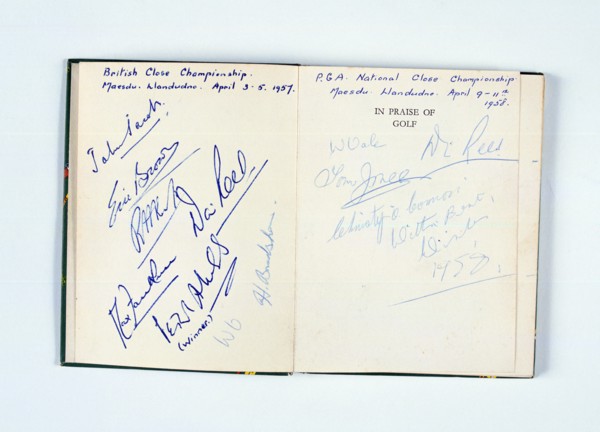 British Close Championship.
Maesdu. Llandudno. April 3-5. 1957.
John Jacobs.
Eric Brown
Dai Rees
Max Faulkner
(winner)
H. Bradshaw.
P.G.A. National Close Championship
Maesdu. Llandudno. April 9-11th
1958.
IN PRAISE OF
GOLF
Dai Rees.
Tom Jones
Christy O'Connor.
1958.